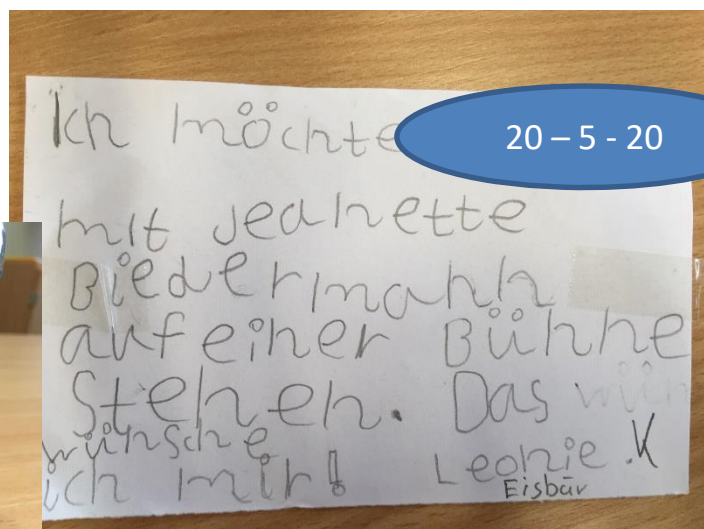 Ich möchte
20 – 5 - 20
mit Jeanette
Biedermann
auf einer Bühne
Stehen. Das wün
wünsche
ich mir! Leonie.K
Eisbär